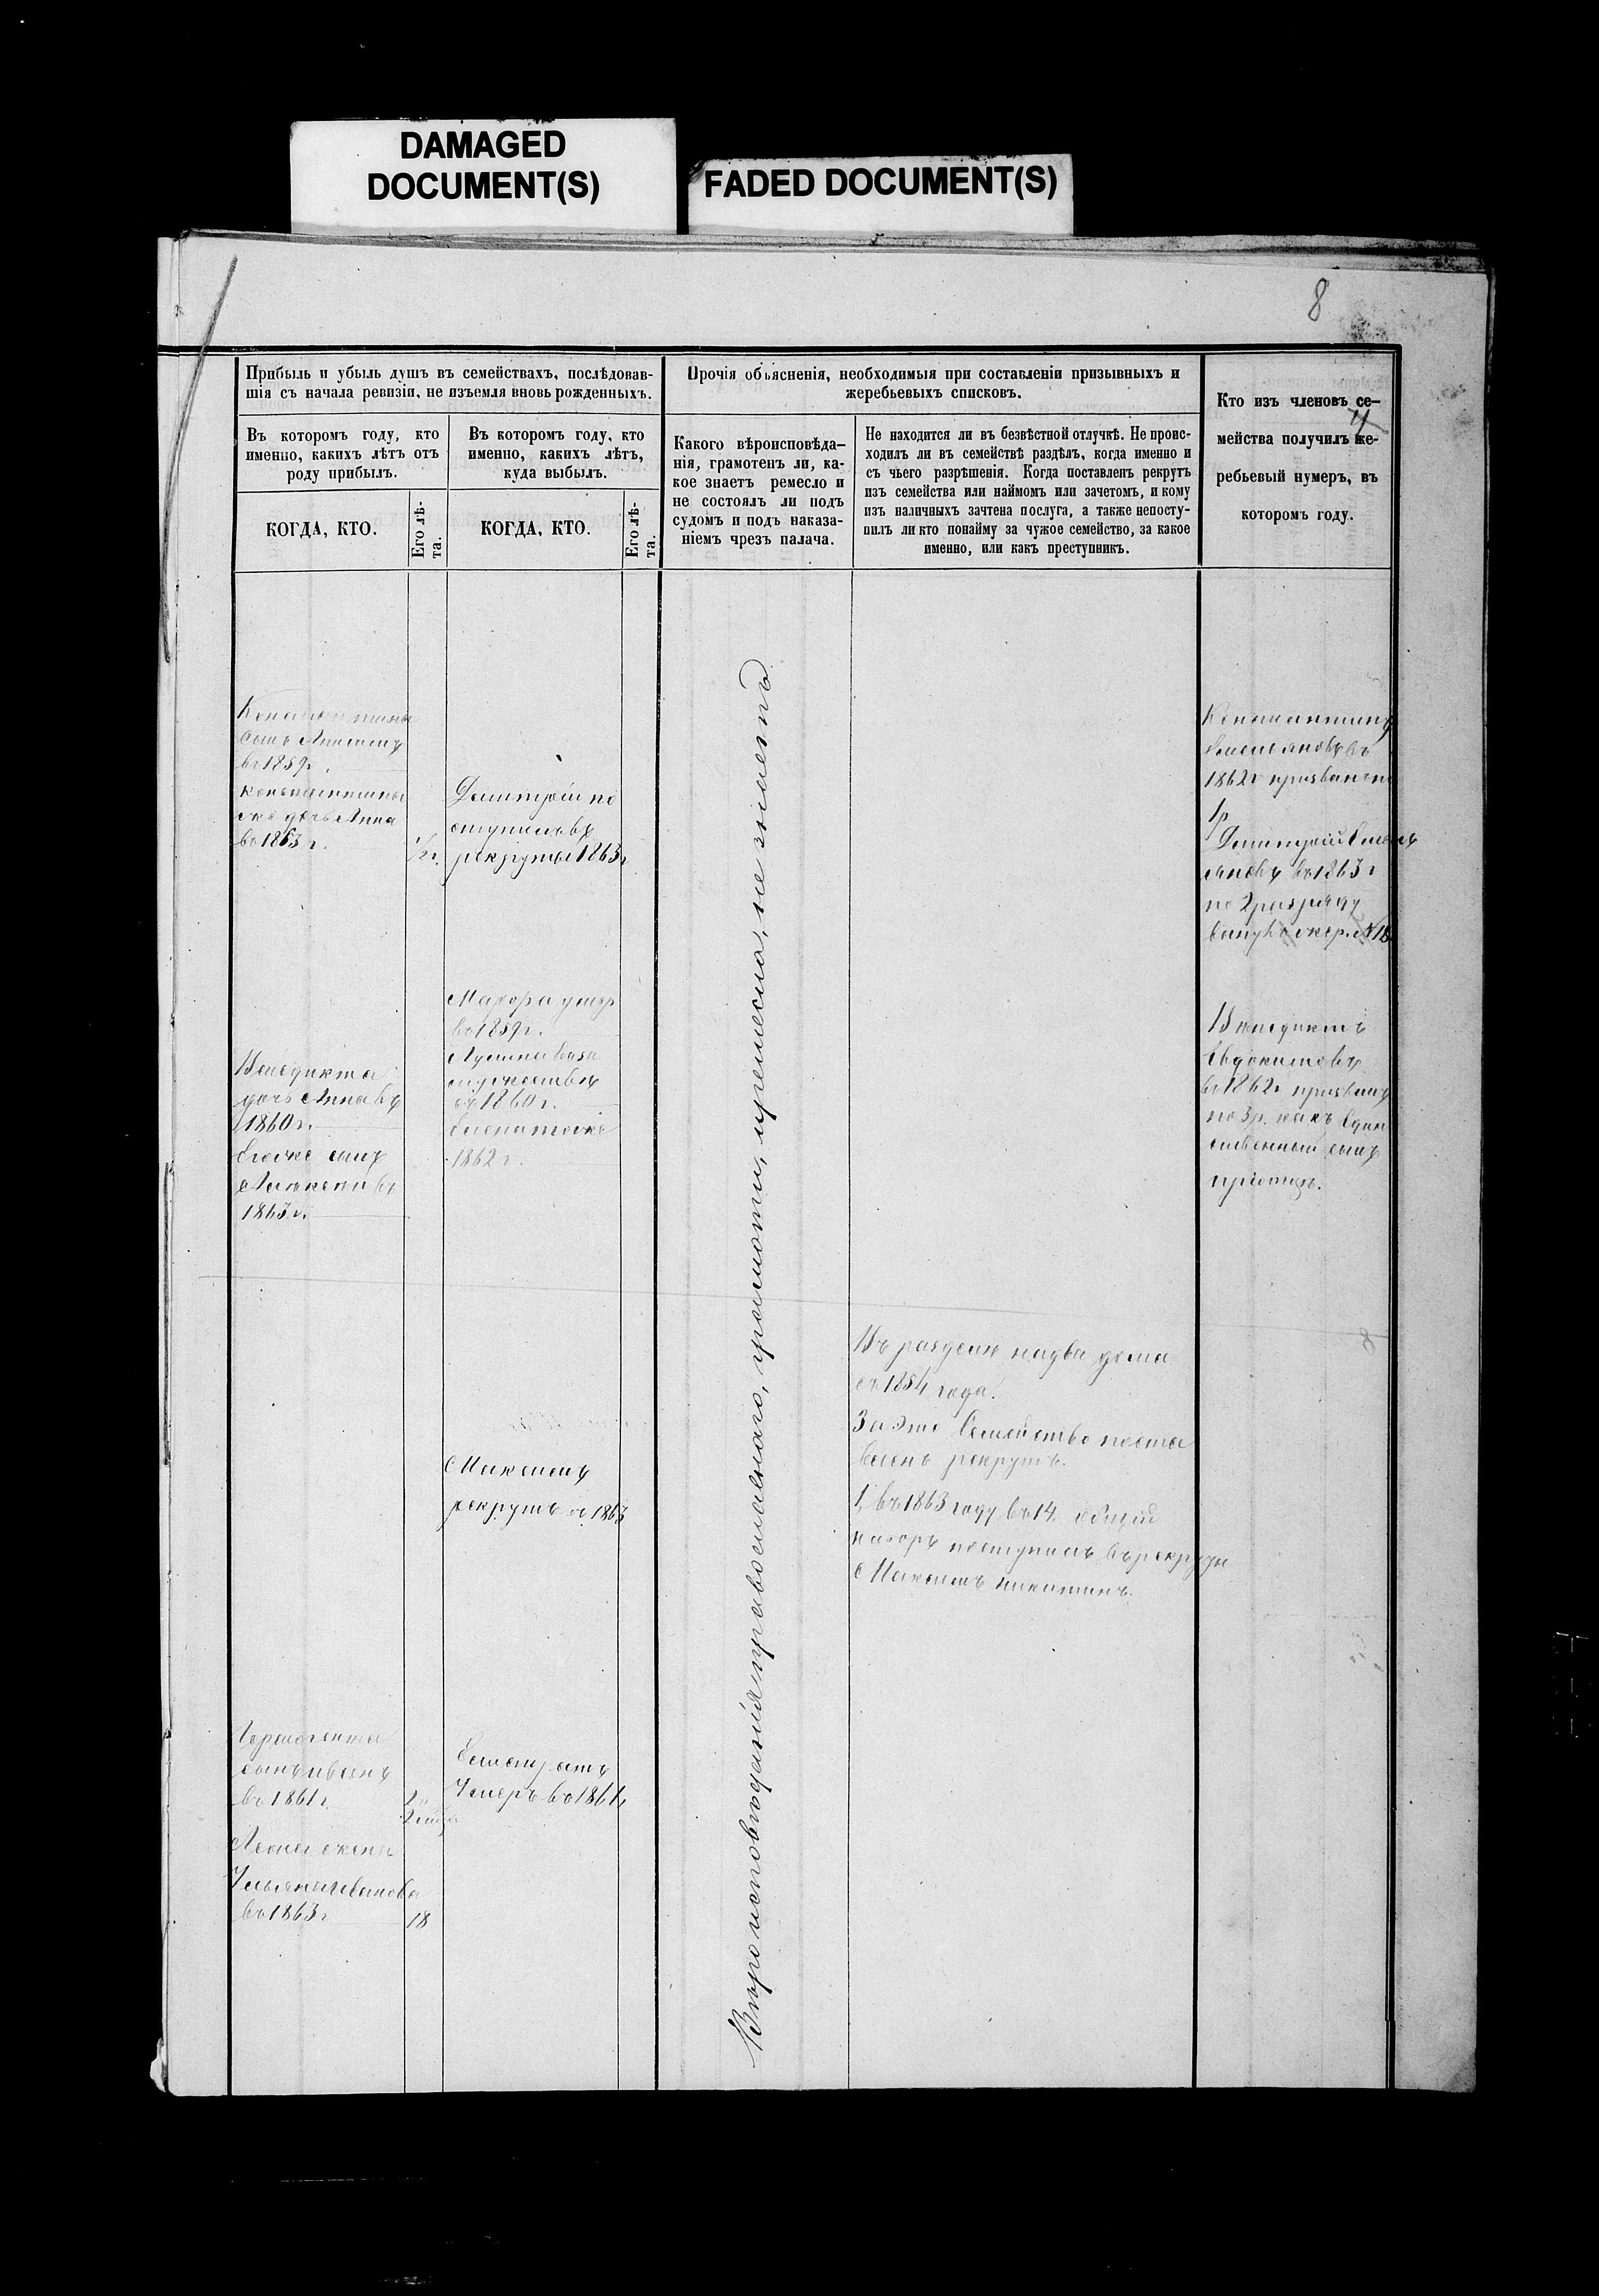 DAMAGED
DOCUMENT(S)
FADED DOCUMENT(S)
8
Прибыль и убыль душъ въ семействахъ, послѣдовав-
шія съ начала ревизіи, не изъемля вновь рожденныхъ.
Въ которомъ году, кто
именно, какихъ лѣтъ отъ
роду прибылъ.
КОГДА, КТО.
Его лѣ-
та.
Въ которомъ году, кто
именно, какихъ лѣтъ,
куда выбылъ.
КОГДА, КТО.
Его лѣ-
та.
Прочія объясненія, необходимыя при составленіи призывныхъ и
жеребьевыхъ списковъ.
Какого вѣроисповѣда-
нія, грамотенъ ли, ка-
кое знаетъ ремесло и
не состоялъ ли подъ
судомъ и подъ наказа-
ніемъ чрезъ палача.
Не находится ли въ безвѣстной отлучкѣ. Не проис-
ходилъ ли въ семействѣ раздѣлъ, когда именно и
съ чьего разрѣшенія. Когда поставленъ рекрутъ
изъ семейства или наймомъ или зачетомъ, и кому
изъ наличныхъ зачтена послуга, а также непосту-
пилъ ли кто понайму за чужое семейство, за какое
именно, или какъ преступникъ.
Кто изъ членовъ се-
мейства получилъ же-
ребьевый нумеръ, въ
которомъ году.
Константина
сынъ
въ 1859 г.
Константина
же дочь Анна
въ 1863 г.
1/2 г.
Венедикта
дочь Анна въ
1860 г.
Егоже сынъ
въ
1863 г.
сынъ Иванъ
въ 1861 г.
2
жена
Ульяна Иванова
въ 1863 г.
18
Дмитрій по
ступилъ въ
рекруты 1863 г
умер
въ 1859 г.
въ 1860 г.
1862 г.
Максимъ
рекрутъ въ 1863
Умеръ въ 1861 г
Вероисповѣданія православнаго, грамоты, и ремесла, не знаетъ
Въ разделе на два дома
съ 1854 года.
За это Семейство поста
вленъ рекрутъ.
1, въ 1863 году въ 14. общій
наборъ поступилъ въ рекруты
Максимъ Никитинъ.
Константинъ
Емельяновъ въ
1862 г призванъ по
1 р
Дмитрій Емель
яновъ въ 1863 г
по 2 разряду
жер. № 18
Венедиктъ
Евдокимовъ
въ 1862 г призванъ
по 3 р. какъ Един
ственный сынъ
при отцѣ.